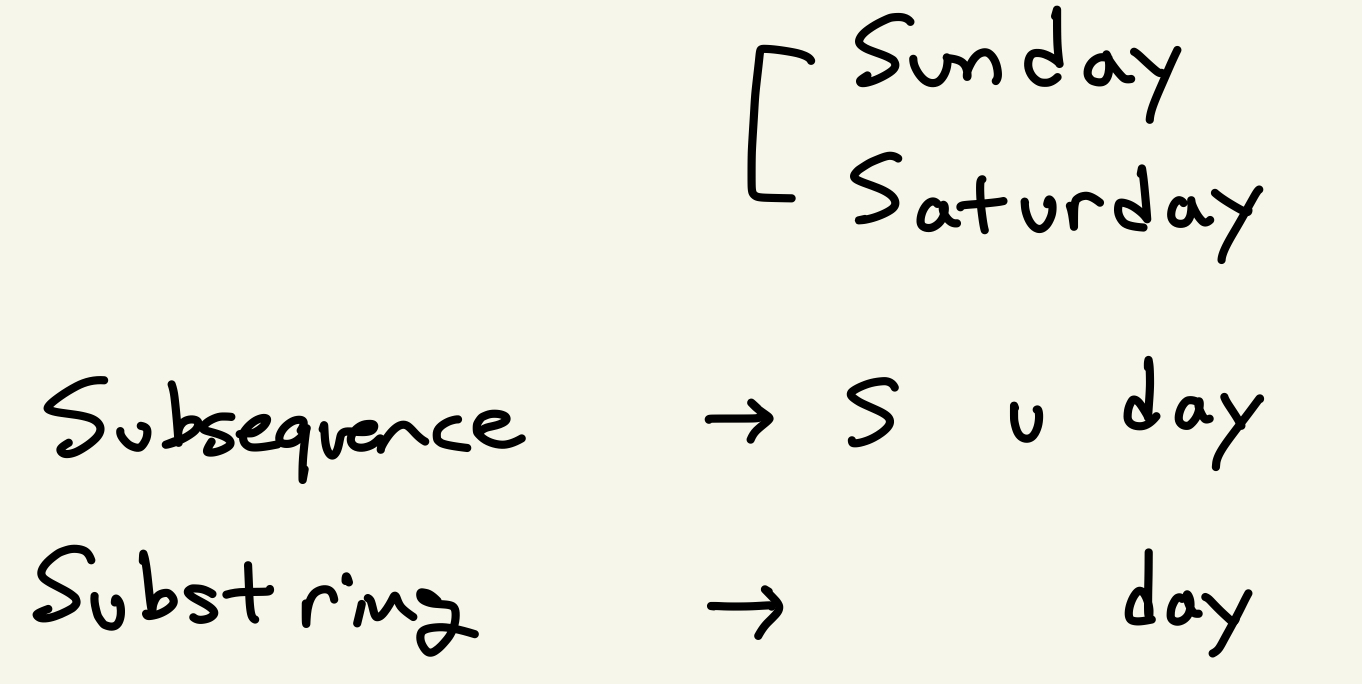 Sunday
Saturday
Subsequence → S u day
Substring → day